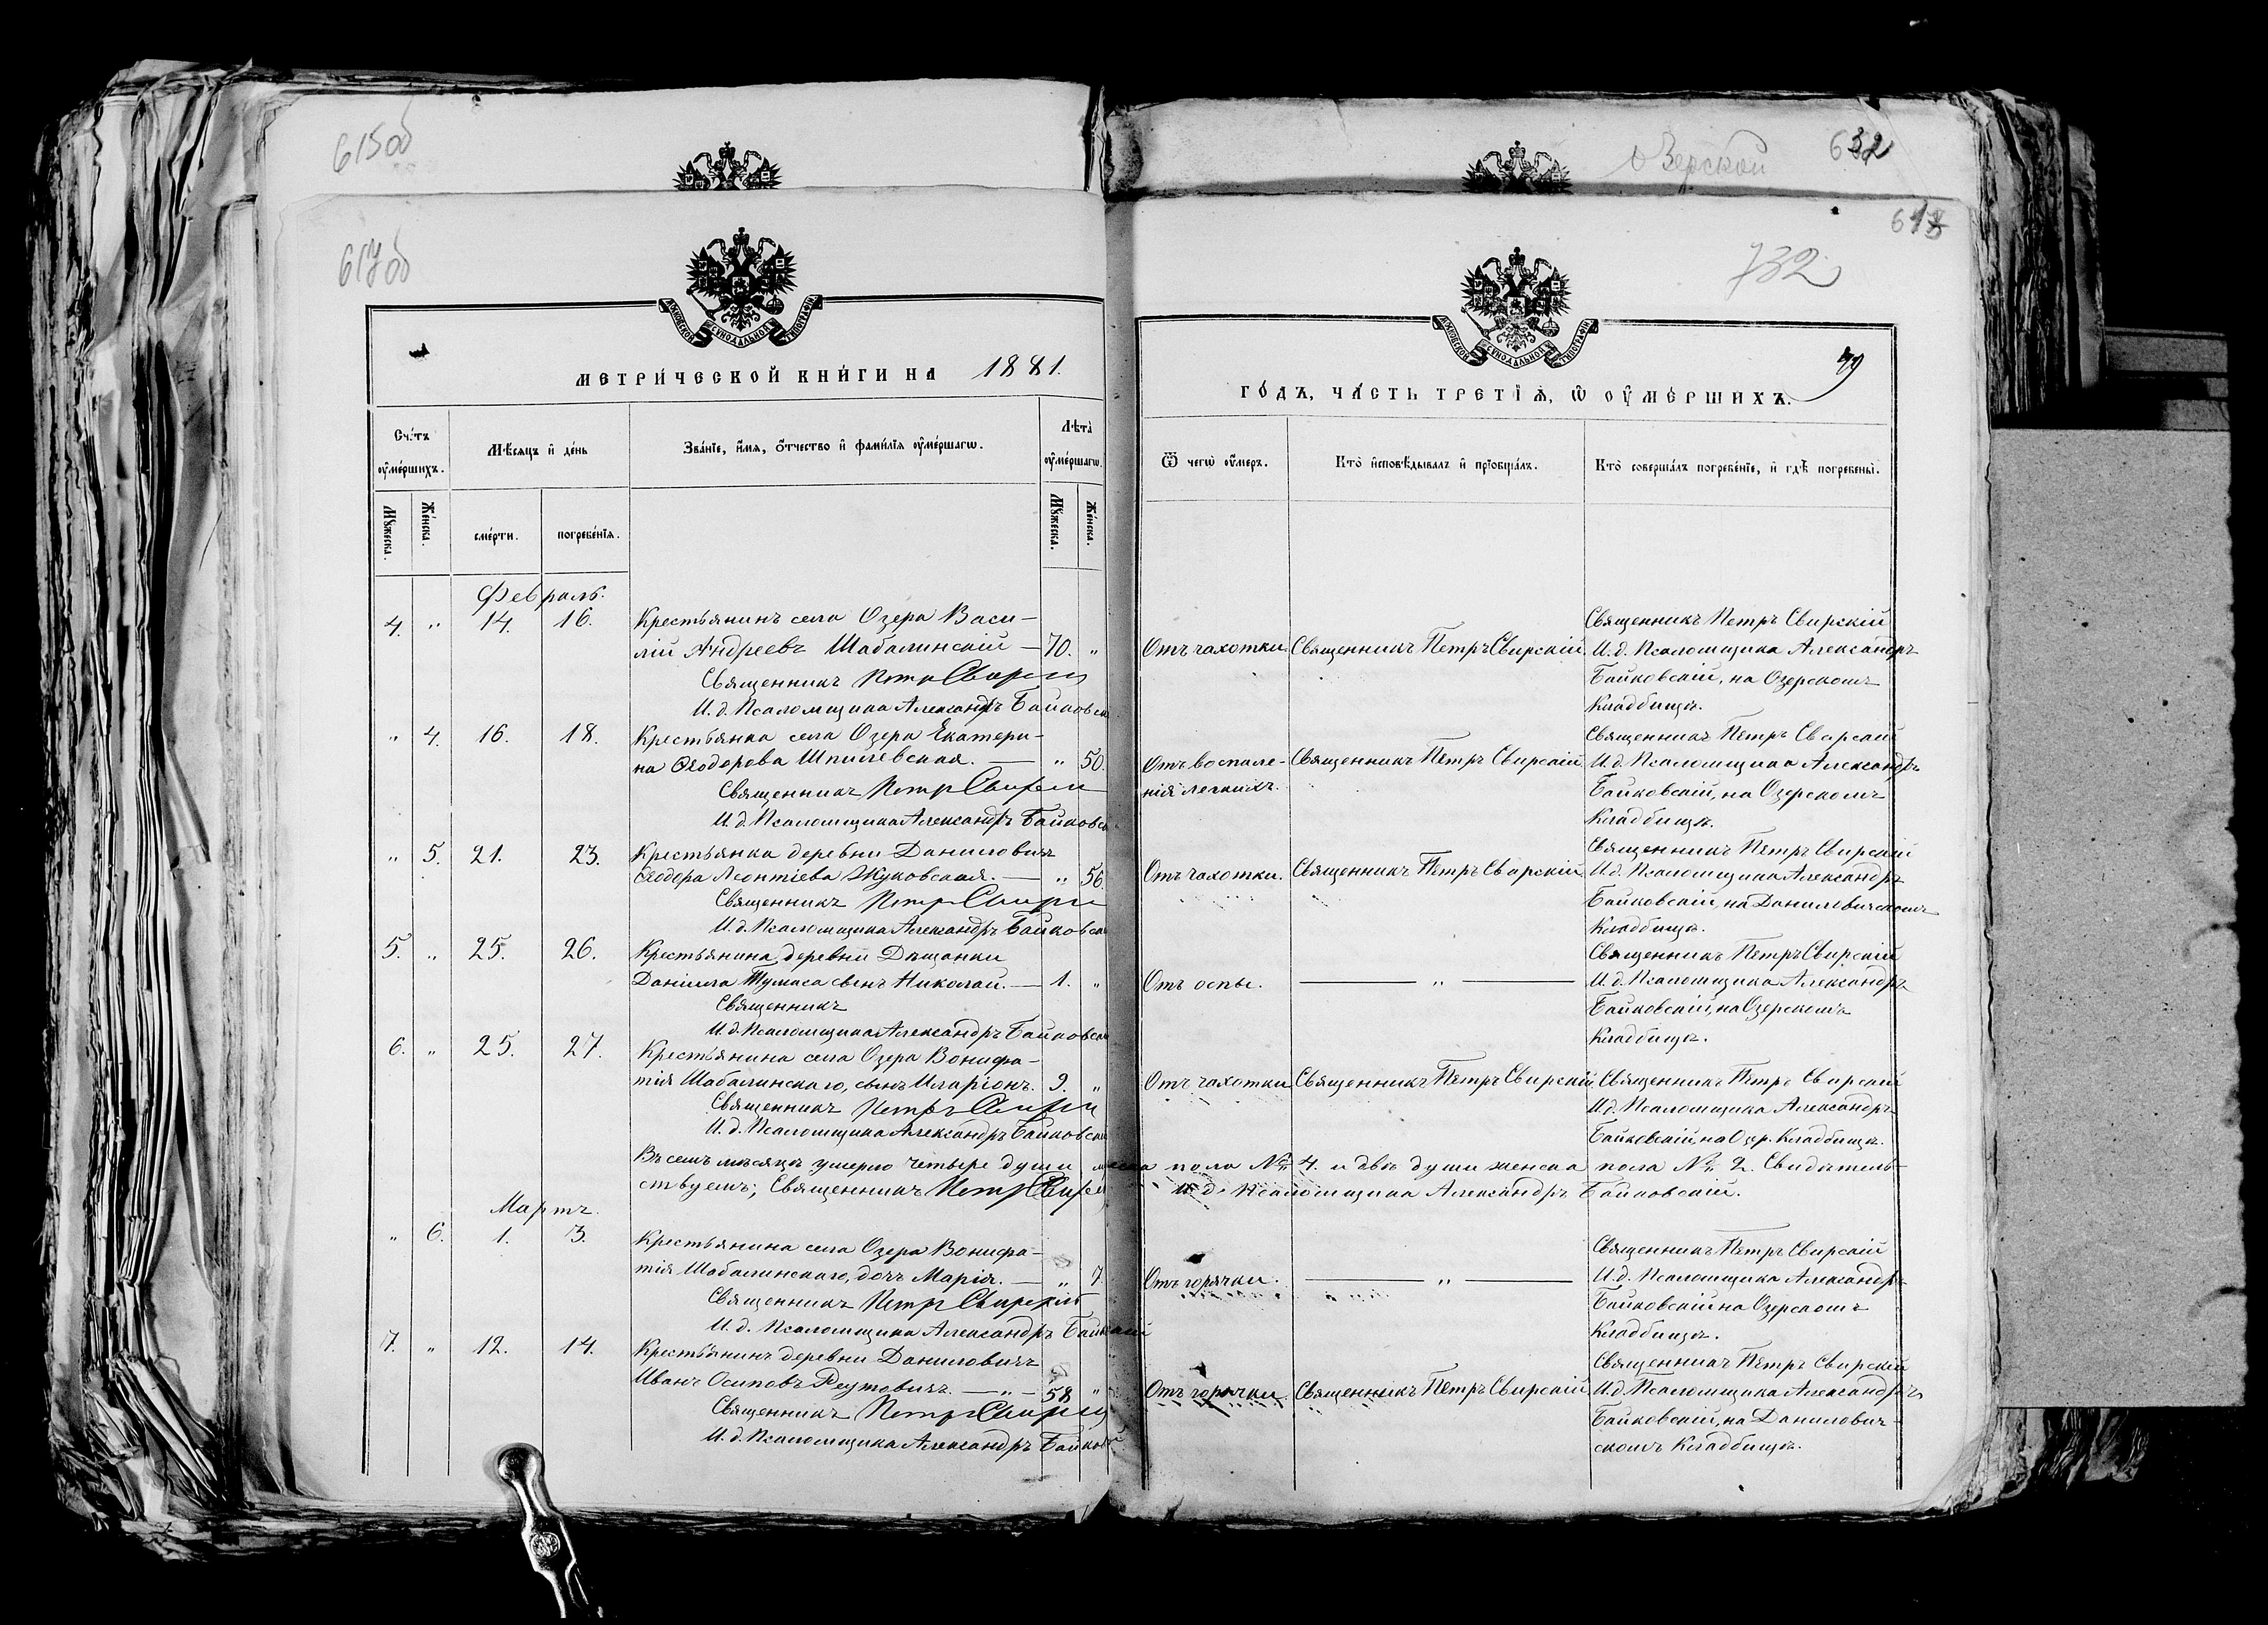 615об
Озерской
632
617об
618
732
МЕТРИ́ЧЕСКОЙ КНИ́ГИ НА 1881.
79
ГО́ДЪ, ЧА́СТЬ ТРЕТІѦ, Ѡ ОУ҆МЕ́РШИХЪ.
Сче́тъ оу҆ме́ршихъ.
Мѣ́сяцъ и҆ де́нь
Зва́нїе, и҆́мя, ѻ҆́тчество и҆ фами́лїя оу҆ме́ршагѡ.
Лѣ́та оу҆ме́ршагѡ.
Ѿ чегѡ̀ оу҆́меръ.
Кто̀ и҆сповѣ́дывалъ и҆ прїобща́лъ.
Кто̀ соверша́лъ погребе́нїе, и҆ гдѣ̀ погребены̀.
Му́жеска.
Же́нска.
сме́рти.
погребе́нїя.
Му́жеска.
Же́нска.
Февраль.
4. " 14. 16. Крестьянинъ села Озера Васи-
лій Андреевъ Шабалинскій — 70. "
Священникъ Петръ Свирскій
И. д. Псаломщика Александръ Байковск
Отъ чахотки. Священникъ Петръ Свирскій.
Священникъ Петръ Свирскій
И. д. Псаломщика Александръ
Байковскій, на Озерскомъ
Кладбищѣ.
" 4. 16. 18. Крестьянка села Озера Екатери-
на Ѳеодорова Шпилевская. — " 50.
Священникъ Петръ Свирскій
И. д. Псаломщика Александръ Байковск
Отъ воспале- Священникъ Петръ Свирскій
нія легкихъ.
Священникъ Петръ Свирскій
И. д. Псаломщика Александръ
Байковскій, на Озерскомъ
Кладбищѣ.
" 5. 21. 23. Крестьянка деревни Даниловичъ
Ѳеодора Леонтіева Жуковская. — " 56.
Священникъ Петръ Свирскій
И. д. Псаломщика Александръ Байковск
Отъ чахотки. Священникъ Петръ Свирскій
Священникъ Петръ Свирскій
И. д. Псаломщика Александръ
Байковскій, на Данилевичскомъ
Кладбищѣ.
5. " 25. 26. Крестьянина деревни Дащонки
Даніила Тумаса сынъ Николай. — 1. "
Священникъ
И. д. Псаломщика Александръ Байковск
Отъ оспы. — " —
Священникъ Петръ Свирскій
И. д. Псаломщика Александръ
Байковскій, на Озерскомъ
Кладбищѣ.
6. " 25. 27. Крестьянина села Озера Вонифа-
тія Шабалинскаго, сынъ Иларіонъ. 9. "
Священникъ Петръ Свирскій
И. д. Псаломщика Александръ Байковск
Отъ чахотки Священникъ Петръ Свирскій.
Священникъ Петръ Свирскій
И. д. Псаломщика Александръ
Байковскій, на Озер. Кладбищѣ.
Въ семъ мѣсяцѣ умерло четыре души муска пола № 4. и двѣ души женска пола № 2. Свидѣтель-
ствуемъ; Священникъ Петръ Свирскій И. д. Псаломщика Александръ Байковскій.
Мартъ.
" 6. 1. 3. Крестьянина села Озера Вонифа-
тія Шабалинскаго, дочь Марія. — " 7.
Священникъ Петръ Свирскій
И. д. Псаломщика Александръ Байкскій
Отъ горячки. — " —
Священникъ Петръ Свирскій
И. д. Псаломщика Александръ
Байковскій на Озерскомъ
Кладбищѣ.
7. " 12. 14. Крестьянинъ деревни Даниловичъ
Иванъ Осиповъ Реутовичъ. — " — 58. "
Священникъ Петръ Свирскій
И. д. Псаломщика Александръ Байков
Отъ горячки. Священникъ Петръ Свирскій
Священникъ Петръ Свирскій
И. д. Псаломщика Александръ
Байковскій, на Данилович-
скомъ Кладбищѣ.